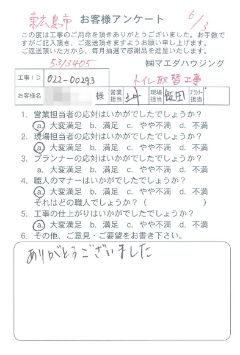 東広島市 お客様アンケート 6/3
この度は工事のご用命を頂きありがとうございました。お手数で
すがご記入頂き、ご返送頂きますようお願い申し上げます。
ご返送頂いた方から、毎月抽選で感謝品を進呈いたします。
53/3405 ㈱マエダハウジング
工事ID 022-00293 トイレ取替工事
お客様名 様 営業担当 現場担当 飯田
1. 営業担当者の応対はいかがでしたでしょうか?
a 大変満足 b. 満足 c. やや不満 d. 不満
2. 現場担当者の応対はいかがでしたでしょうか?
a 大変満足 b. 満足 c. やや不満 d. 不満
3. プランナーの応対はいかがでしたでしょうか?
a. 大変満足 b. 満足 c. やや不満 d. 不満
4. 職人のマナーはいかがでしたでしょうか?
a 大変満足 b. 満足 c. やや不満 d. 不満
それはどの職人でしょうか?( )
5. 工事の仕上がりはいかがでしたでしょうか?
a 大変満足 b. 満足 c. やや不満 d. 不満
6. その他、ご意見・ご要望をお書き下さい。
ありがとうございました